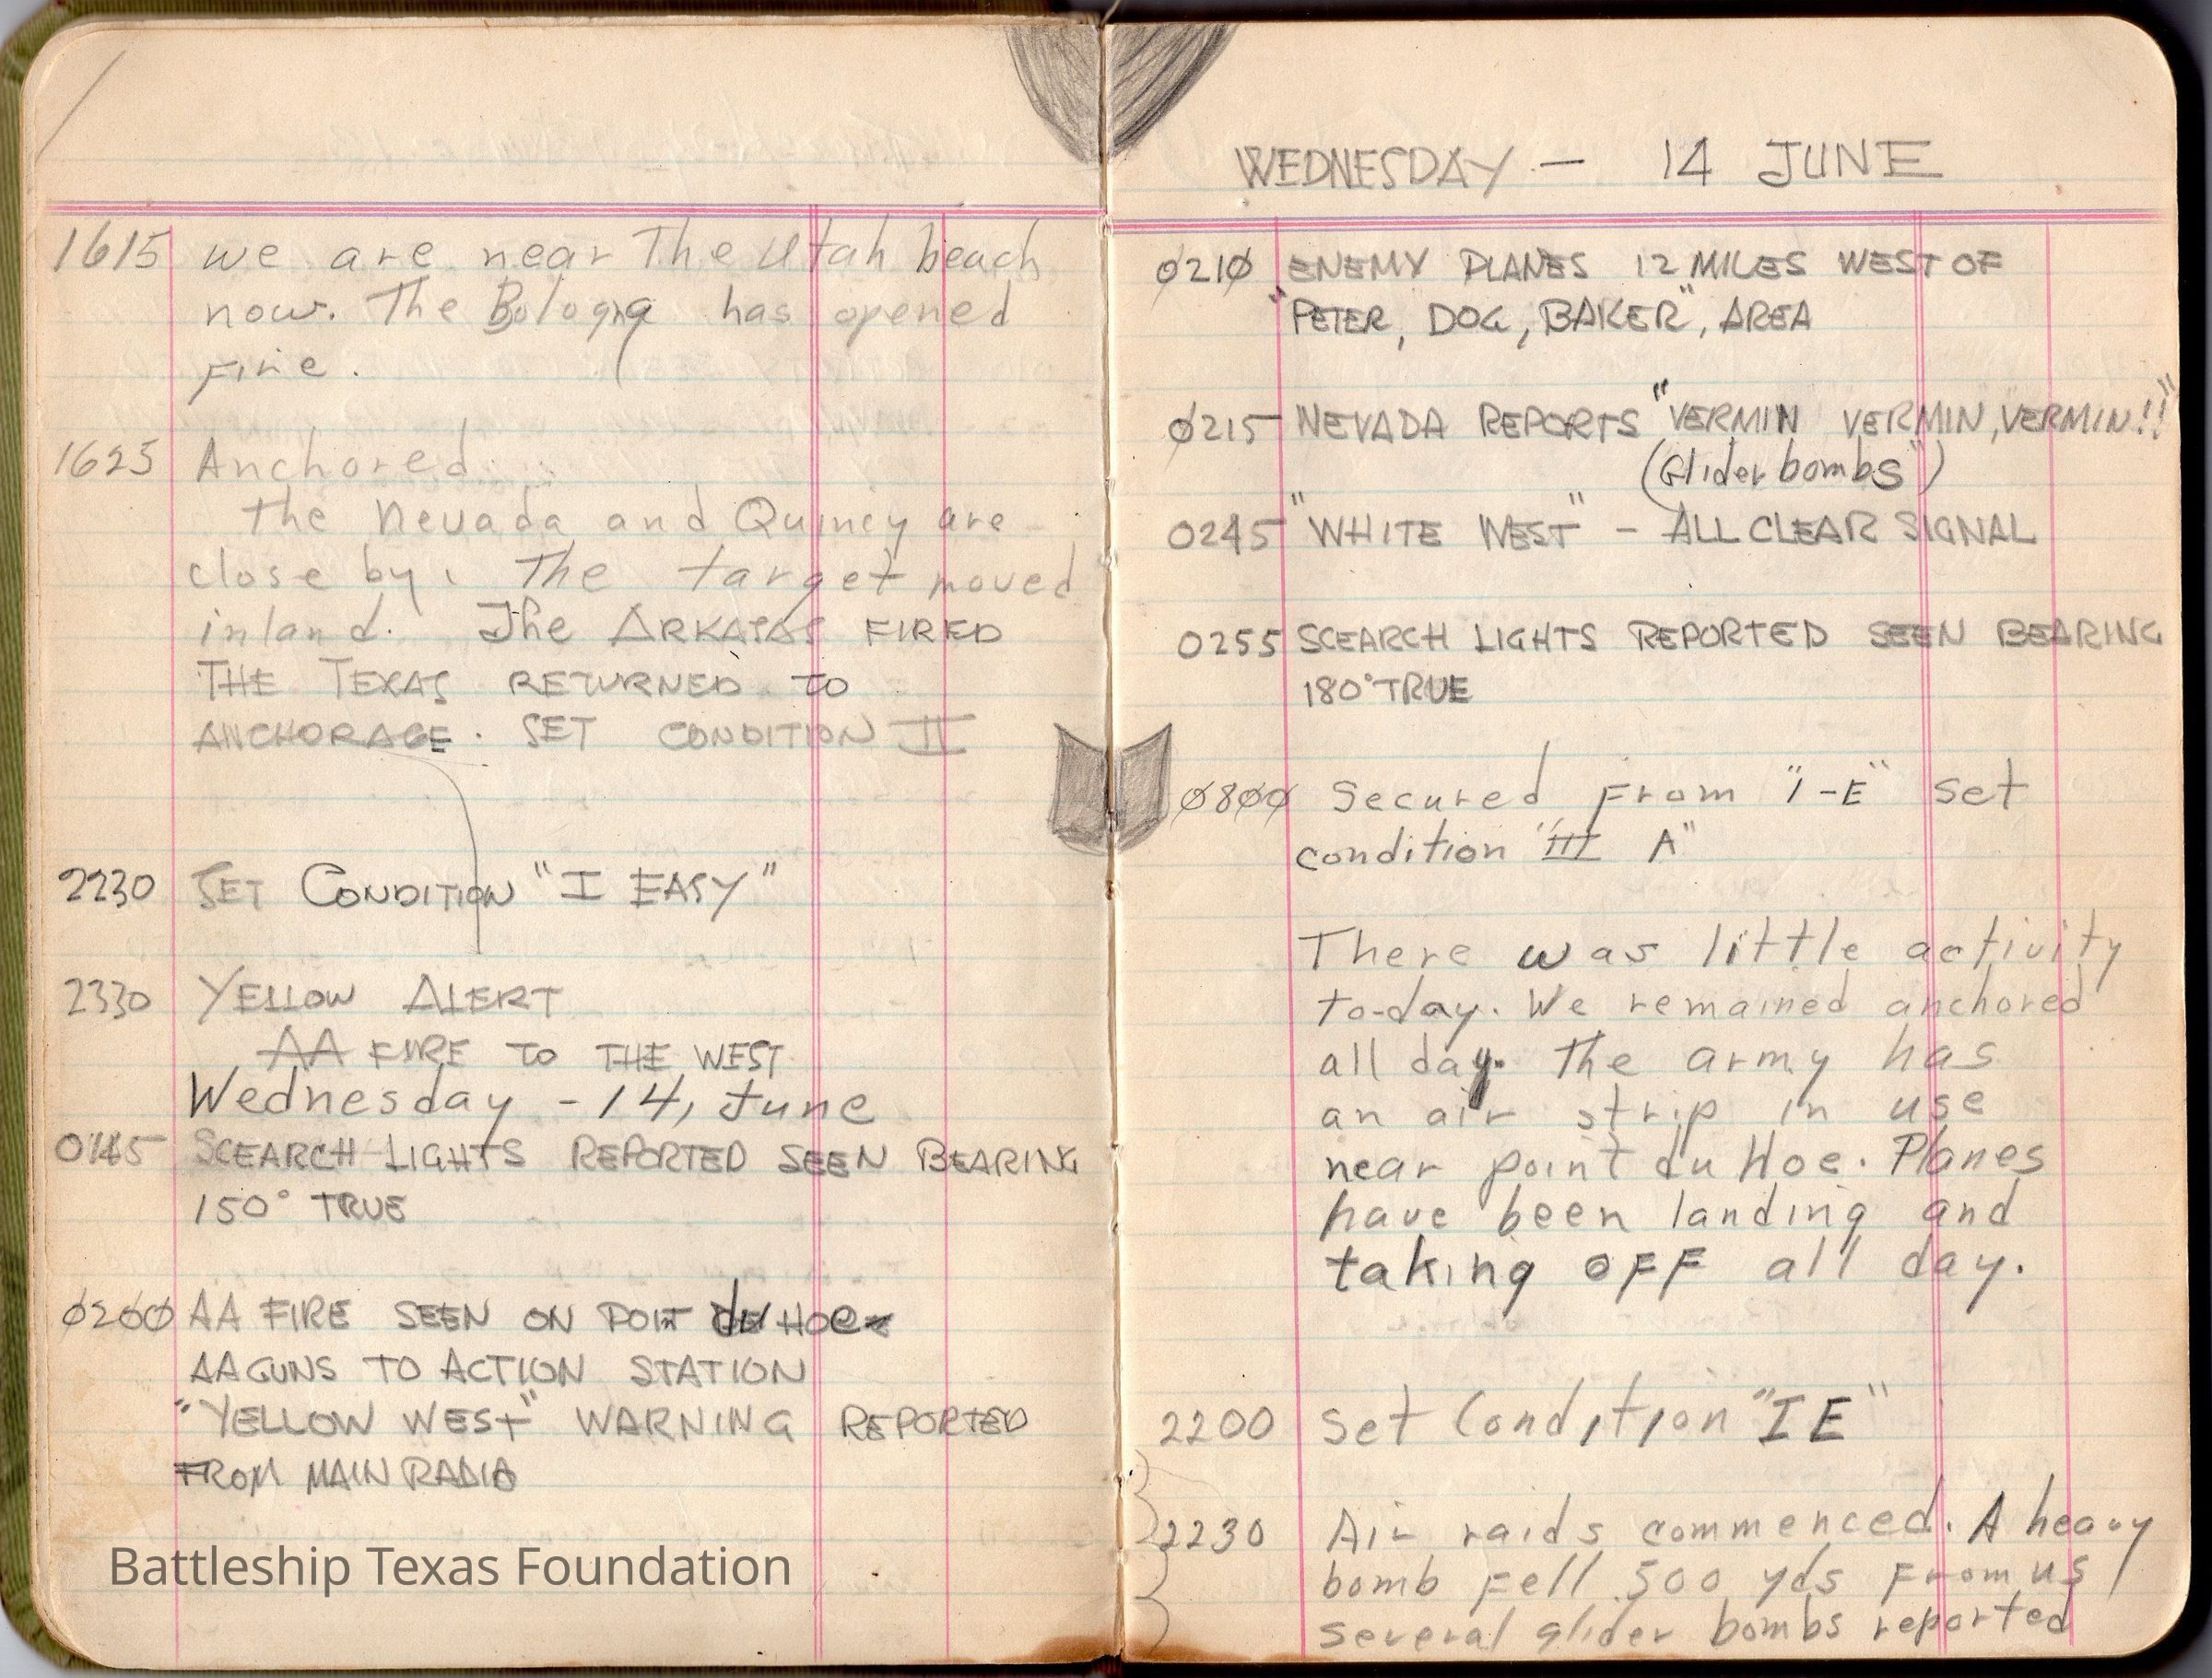 1615 we are near The Utah beach
now. The Bologna has opened
Fire.
1625 Anchored.
The Nevada and Quincy are
close by. The target moved
inland. The ARKASAS FIRED
THE TEXAS RETURNED TO
ANCHORAGE. SET CONDITION II
2230 SET CONDITION "I EASY"
2330 YELLOW ALERT
AA FIRE TO THE WEST
Wednesday - 14, June
0145 SCEARCH LIGHTS REPORTED SEEN BEARING
150° TRUE
0200 AA FIRE SEEN ON POIT du HOE
AA GUNS TO ACTION STATION
"YELLOW WEST" WARNING REPORTED
FROM MAIN RADIO
Battleship Texas Foundation
WEDNESDAY - 14 JUNE
0210 ENEMY PLANES 12 MILES WEST OF
"PETER, DOG, BAKER", AREA
0215 NEVADA REPORTS "VERMIN VERMIN, VERMIN!!"
(Glider bombs")
0245 "WHITE WEST" - ALL CLEAR SIGNAL
0255 SCEARCH LIGHTS REPORTED SEEN BEARING
180° TRUE
0800 Secured From "I-E" set
condition "III A"
There was little activity
to-day. We remained anchored
all day. The army has
an air strip in use
near point du Hoe. Planes
have been landing and
taking OFF all day.
2200 Set Condition "I E"
2230 Air raids commenced. A heavy
bomb Fell 500 yds From us
several glider bombs reported